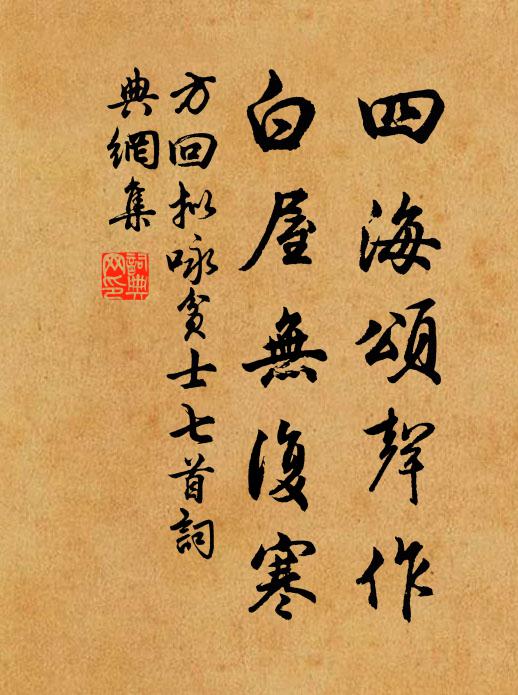 四海頌聲作
白屋無復寒
方回拟咏貧士七首詞
典網集
詞典
网印